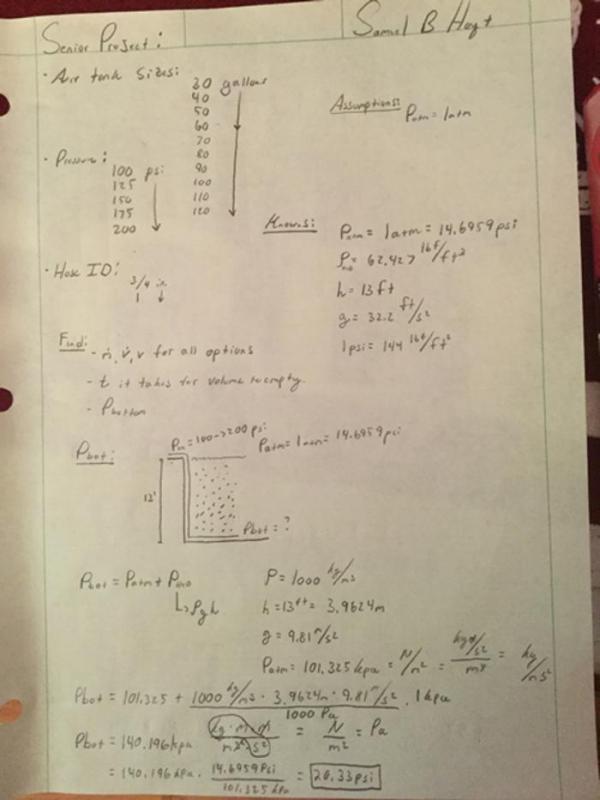 Senior Project: Samuel B Hoyt
· Air tank sizes: 30 gallons
40
50
60
70
80
90
100
110
120
Assumptions: Patm = 1atm
· Pressure: 100 psi
125
150
175
200
Knowns: Patm = 1atm = 14.6959 psi
ρH2O = 62.427 lbf/ft³
h = 13 ft
g = 32.2 ft/s²
1psi = 144 lbf/ft²
· Hose ID: 3/4 in
1
Find: - ṁ, v̇, v for all options
- t it takes for volume to empty.
- Pbottom
Pbot: Pin = 100->200 psi
Patm = 1atm = 14.6959 psi
12'
Pbot = ?
Pbot = Patm + PH2O
↳ ρgh
P = 1000 kg/m³
h = 13 ft = 3.9624m
g = 9.81 m/s²
Patm = 101.325 kpa = N/m² = kg m/s² / m² = kg/ms²
Pbot = 101.325 + 1000 kg/m³ · 3.9624m · 9.81 m/s² / 1000 Pa · 1 kpa
Pbot = 140.196 kpa kg·m·m / m³ s² = N/m² = Pa
= 140.196 kpa · 14.6959 Psi / 101.325 kpa = 20.33 psi